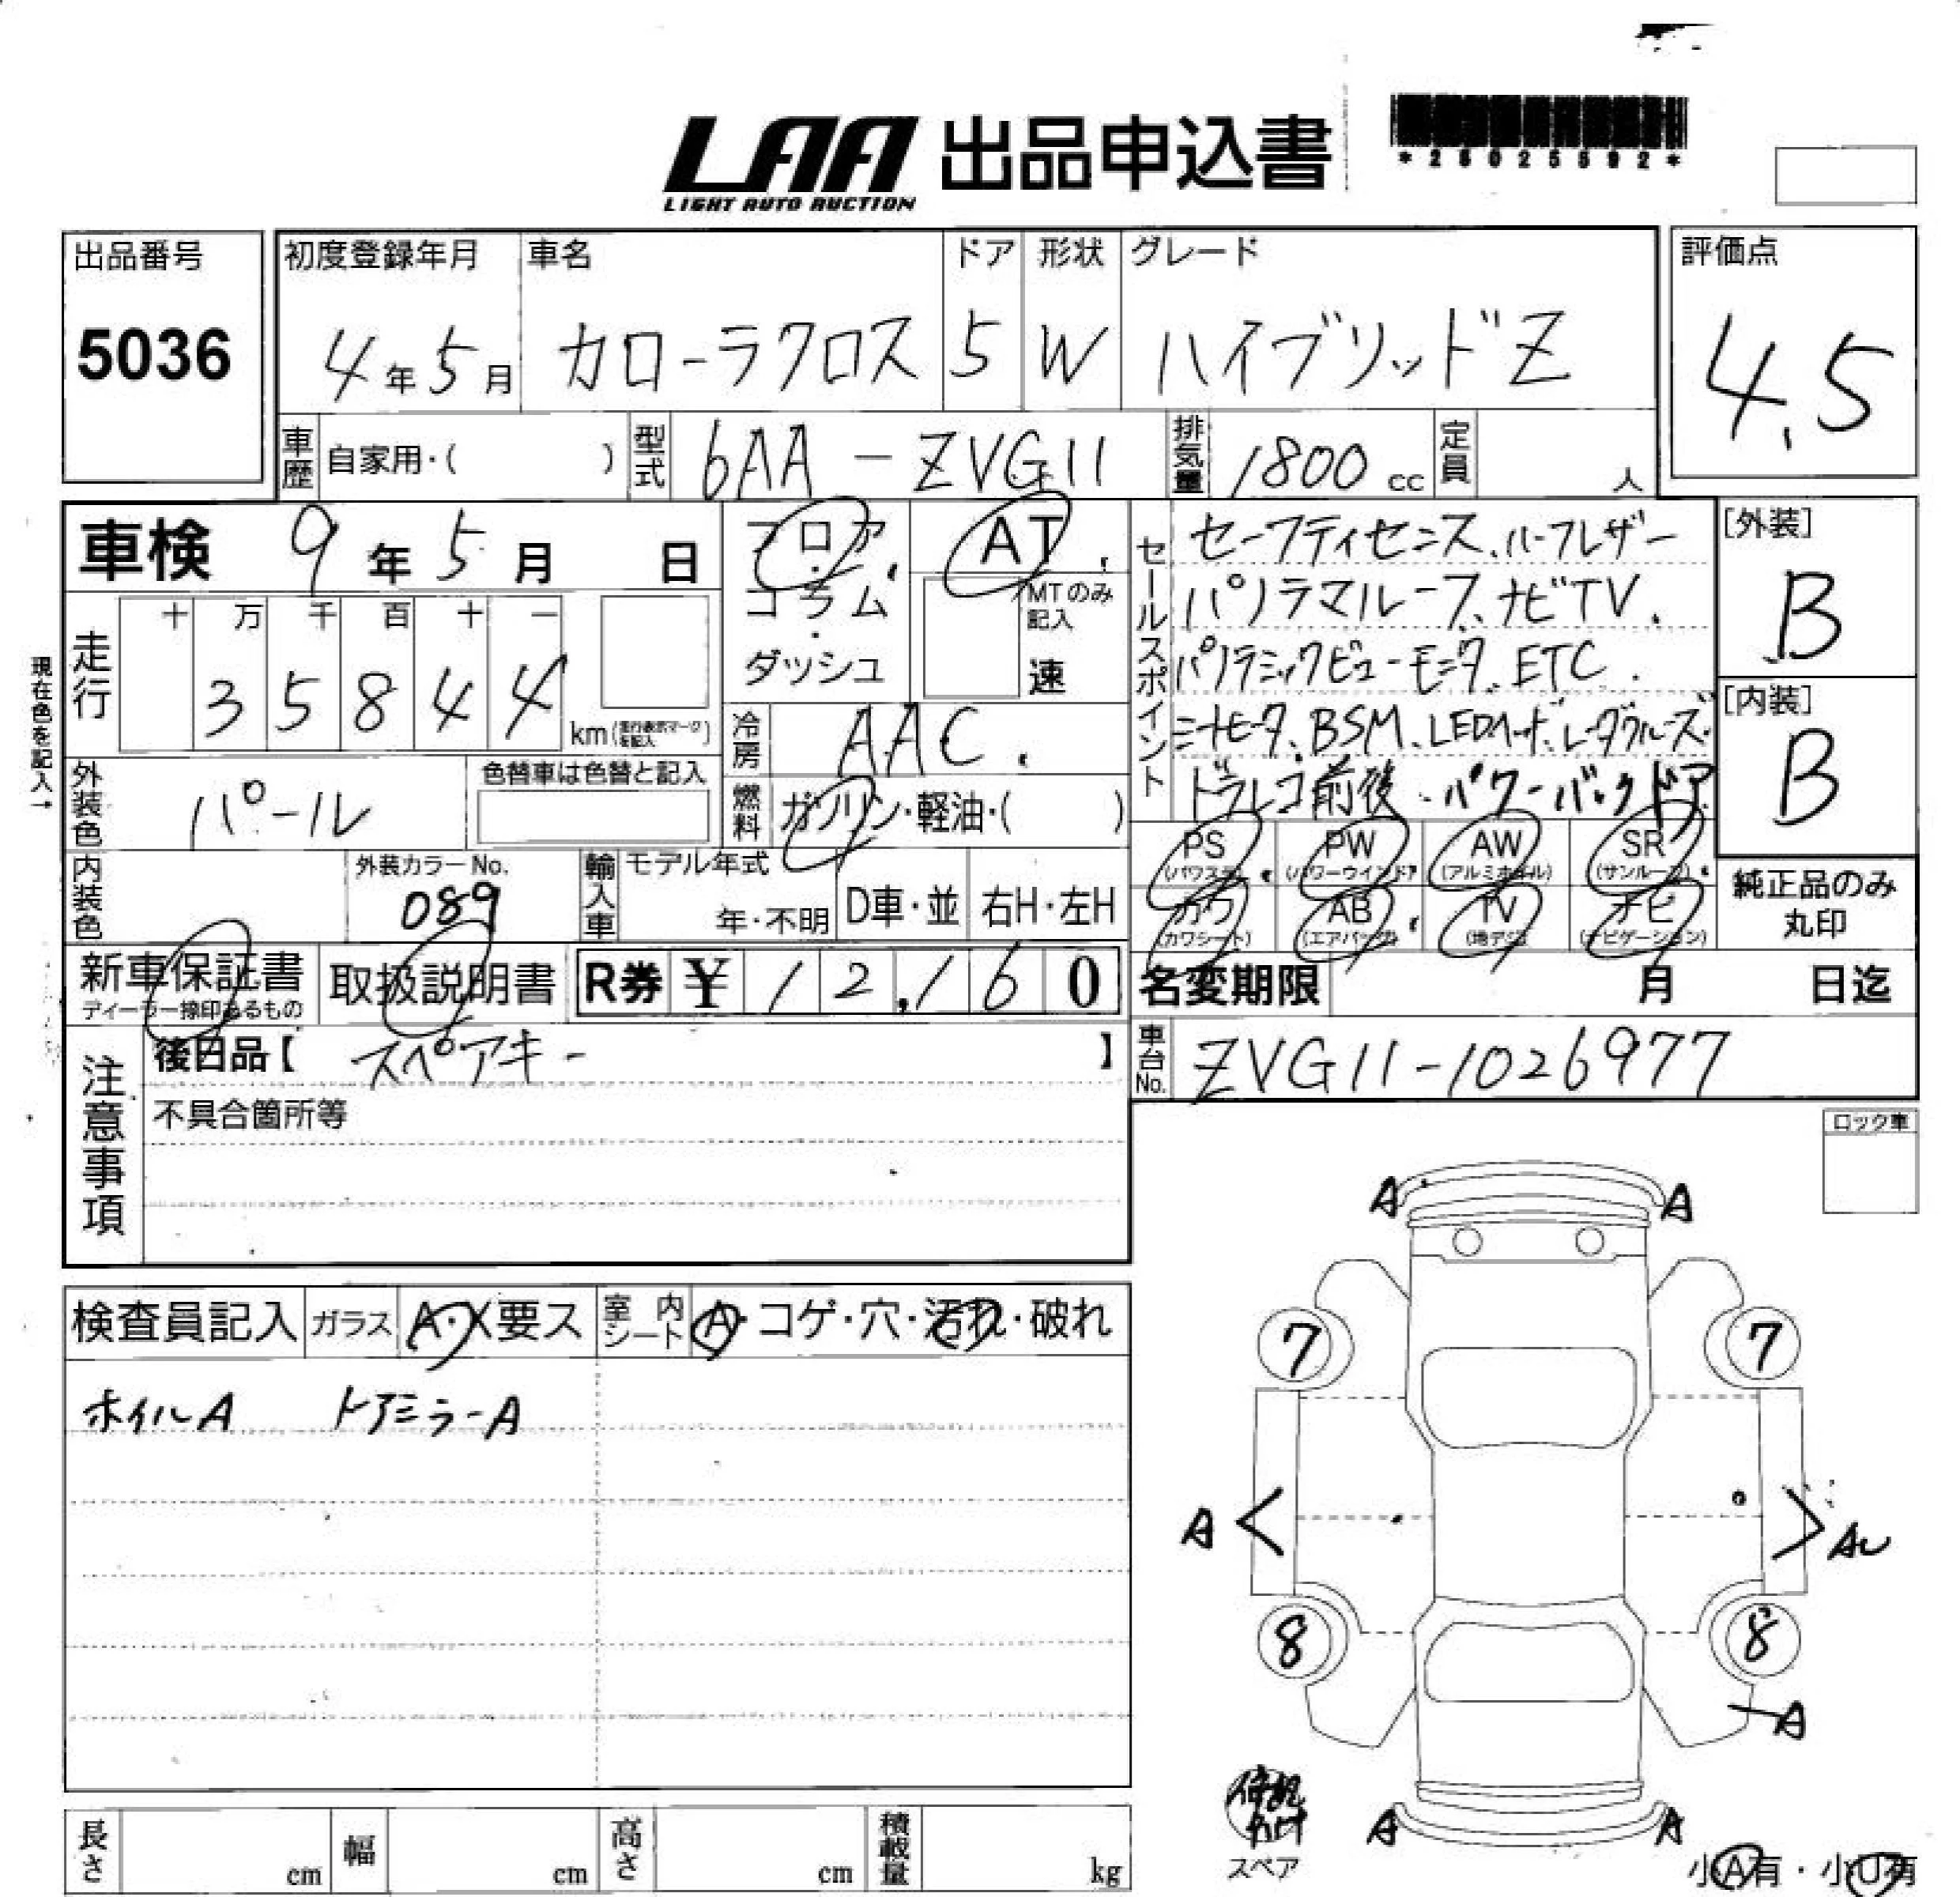 LAA 出品申込書
LIGHT AUTO AUCTION
*28025692*
出品番号
5036
初度登録年月
4年5月
車名
カローラクロス
ドア
5
形状
W
グレード
ハイブリッドZ
評価点
4.5
車歴 自家用・( )
型式 6AA-ZVG11
排気量 1800cc
定員 人
車検 9年5月 日
フロア・コラム・ダッシュ
AT
MTのみ記入
速
セールスポイント
セーフティセンス、ハーフレザー
パノラマルーフ、ナビTV.
パノラミックビューモニタ、ETC.
シートヒータ、BSM、LEDヘッド、レーダクルーズ
ドラレコ前後・パワーバックドア
[外装]
B
[内装]
B
現在色を記入→
走行 十 万 千 百 十 一
35844
km
冷房 AAC.
外装色 パール
色替車は色替と記入
燃料 ガソリン・軽油・( )
内装色
外装カラーNo.
089
輸入車 モデル年式
年・不明
D車・並
右H・左H
PS
(パワステ)
PW
(パワーウインド)
AW
(アルミホイル)
SR
(サンルーフ)
カワ
(カワシート)
AB
(エアバック)
TV
(地デジ)
ナビ
(ナビゲーション)
純正品のみ
丸印
新車保証書
ディーラー捺印あるもの
取扱説明書
R券 ¥12,160
名変期限 月 日迄
車台No. ZVG11-1026977
注意事項
後日品【 スペアキー 】
不具合箇所等
ロック車
検査員記入
ガラス A・X要ス
室内シート A・コゲ・穴・汚れ・破れ
ホイルA ドアミラーA
A A
7 7
A AU
8 8
A
A A
スペア
小A有・小U有
長さ cm
幅 cm
高さ cm
積載量 kg